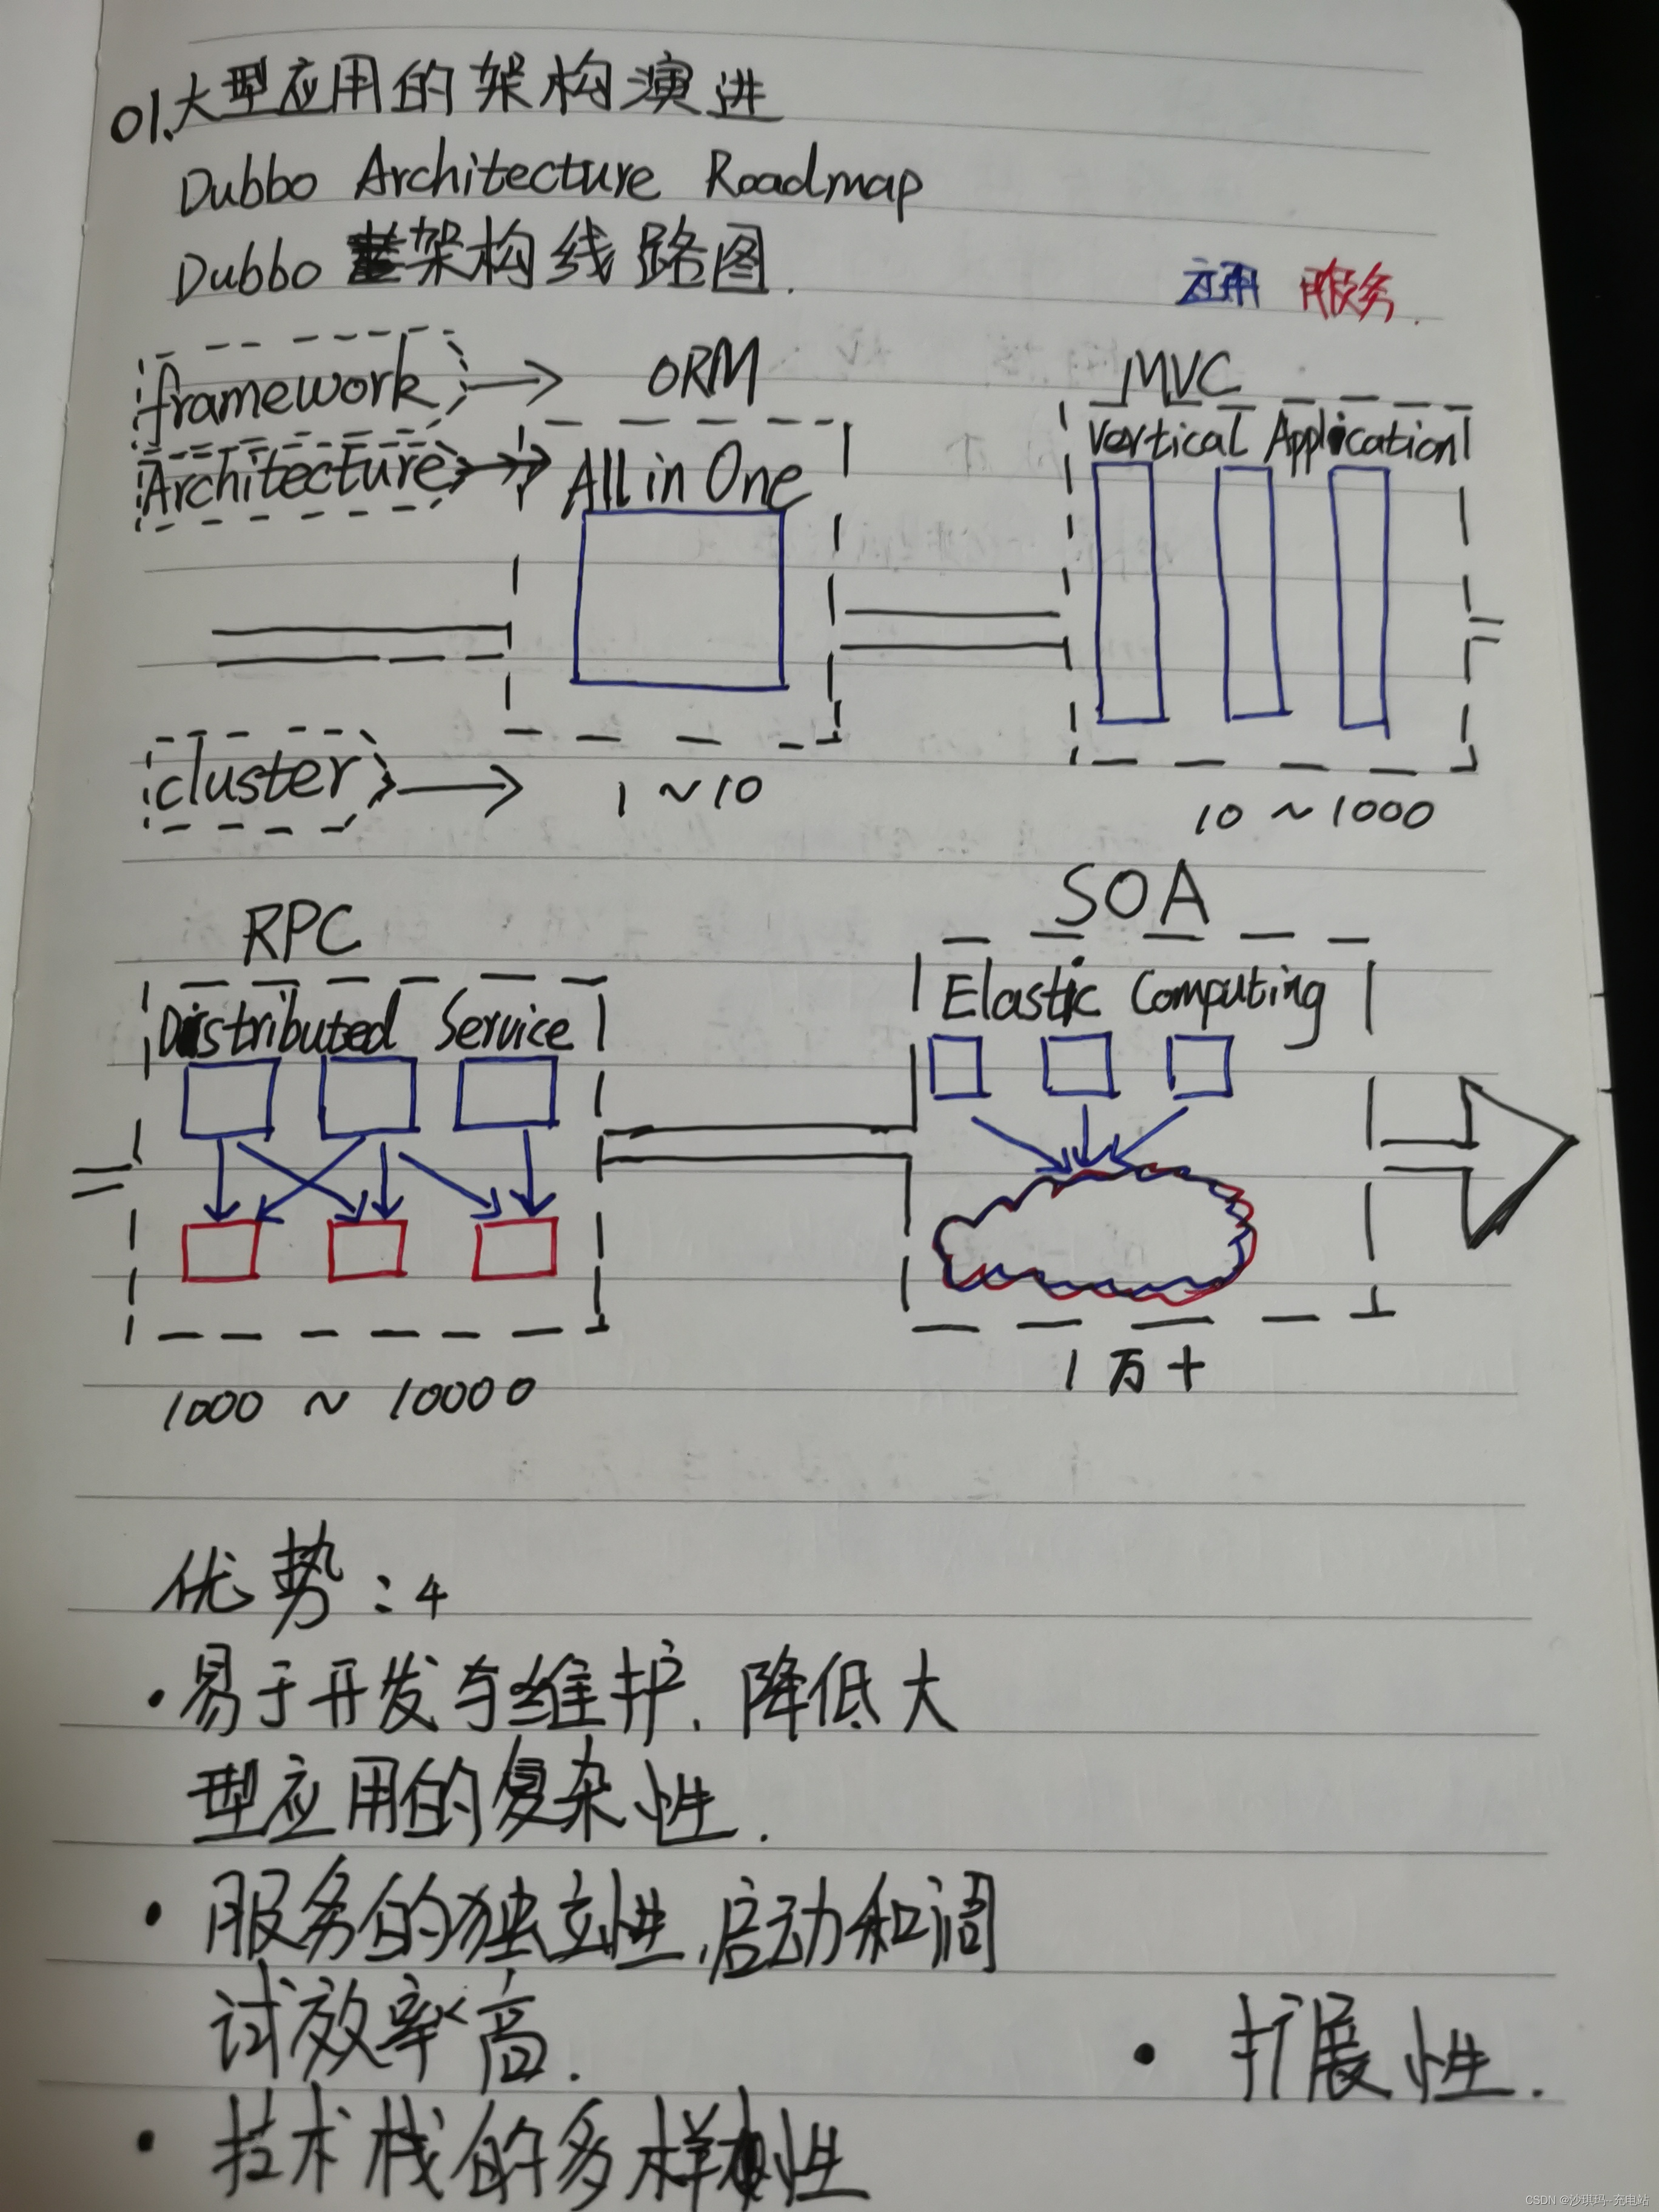 01.大型应用的架构演进
Dubbo Architecture Roadmap
Dubbo 架构线路图.
应用 服务.
framework
ORM
MVC
Architecture
All in One
Vertical Application
cluster
1 ~ 10
10 ~ 1000
RPC
SOA
Distributed Service
Elastic Computing
1000 ~ 10000
1万+
优势:4
·易于开发与维护.降低大
型应用的复杂性.
·服务的独立性,启动和调
试效率高.
·扩展性.
·技术栈的多样性
CSDN @沙琪玛-充电站